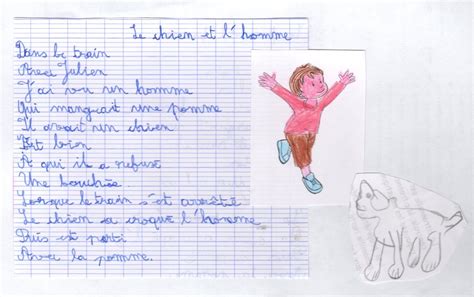 Le chien et l'homme
Dans le train
Avec Julien
J'ai vu un homme
Qui mangeait une pomme
Il avait un chien
Fort bien
A qui il a refusé
Une bouchée.
Lorsque le train s'est arrêté
Le chien a croqué l'homme
Puis est parti
Avec la pomme.